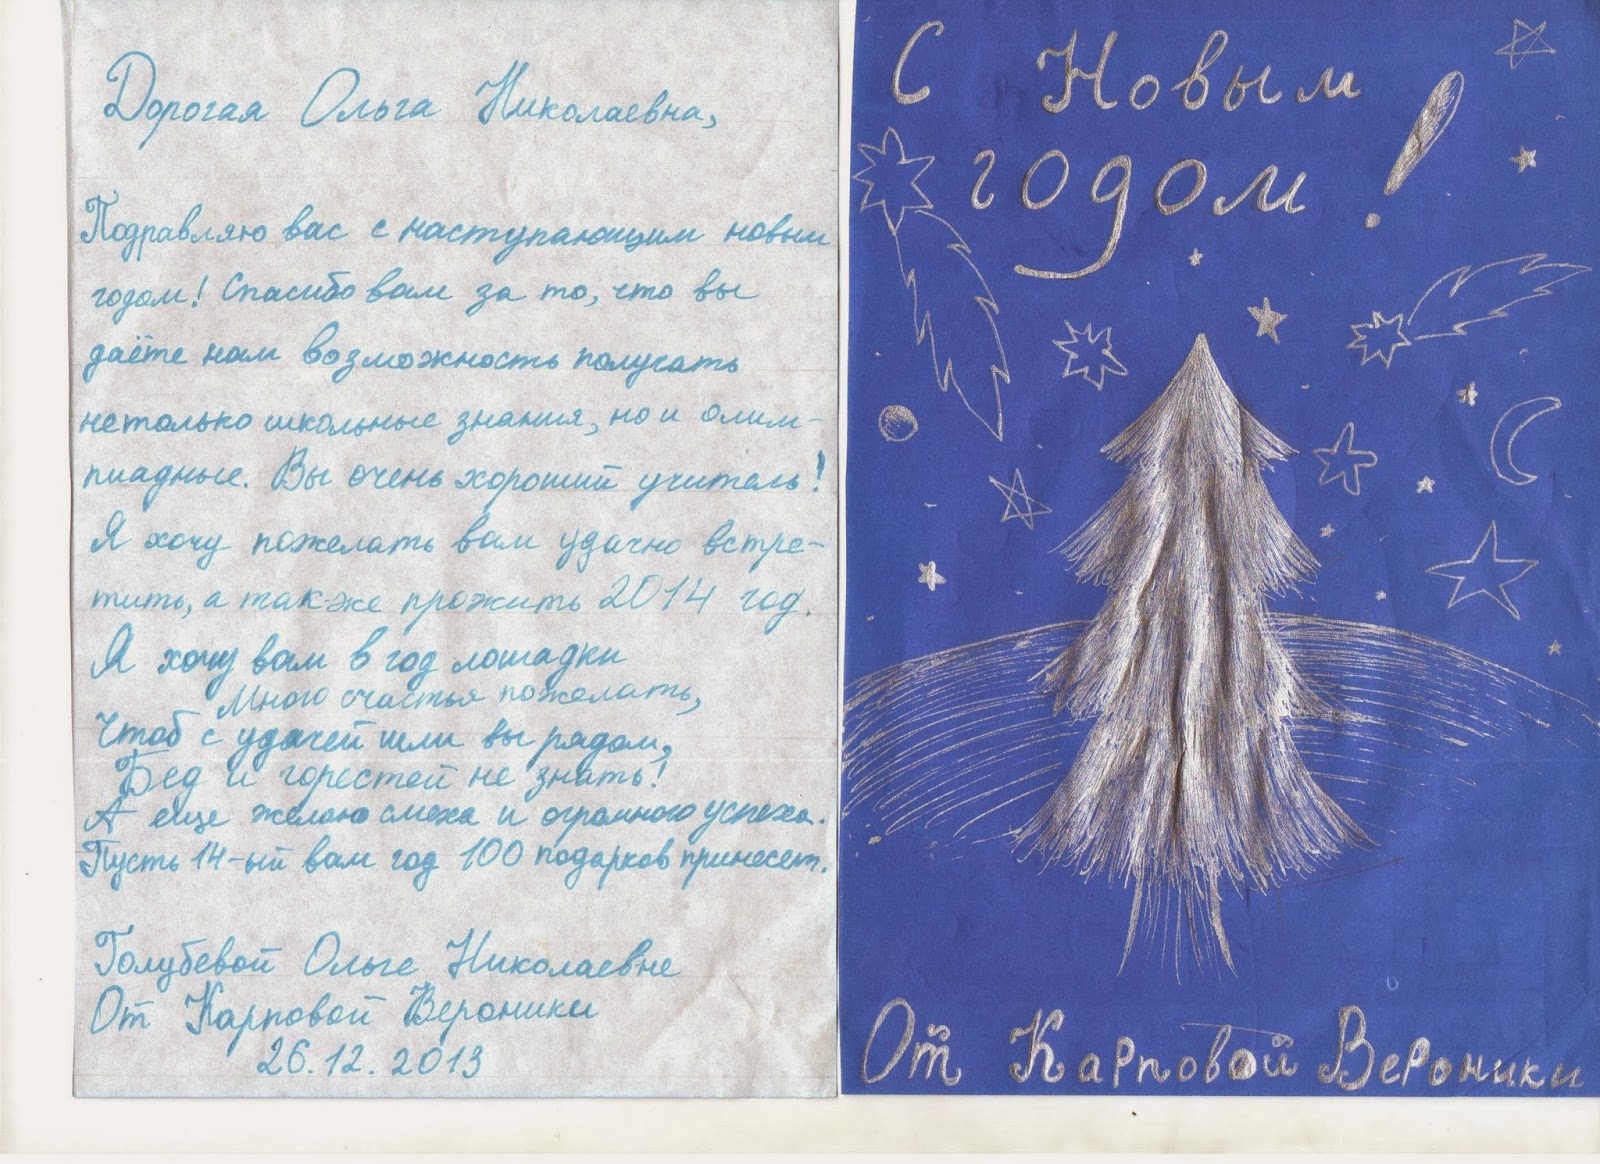 Дорогая Ольга Николаевна,
Подравляю вас с наступающим новым
годом! Спасибо вам за то, что вы
даёте нам возможность получать
не только школьные знания, но и олим-
пиадные. Вы очень хороший учитель!
Я хочу пожелать вам удачно встре-
тить, а также прожить 2014 год.
Я хочу вам в год лошадки
Много счастья пожелать,
Чтоб с удачей шли вы рядом,
Бед и горестей не знать!
А еще желаю смеха и огромного успеха.
Пусть 14-ый вам год 100 подарков принесет.
Голубевой Ольге Николаевне
От Карповой Вероники
26.12.2013
С Новым
годом!
От Карповой Вероники